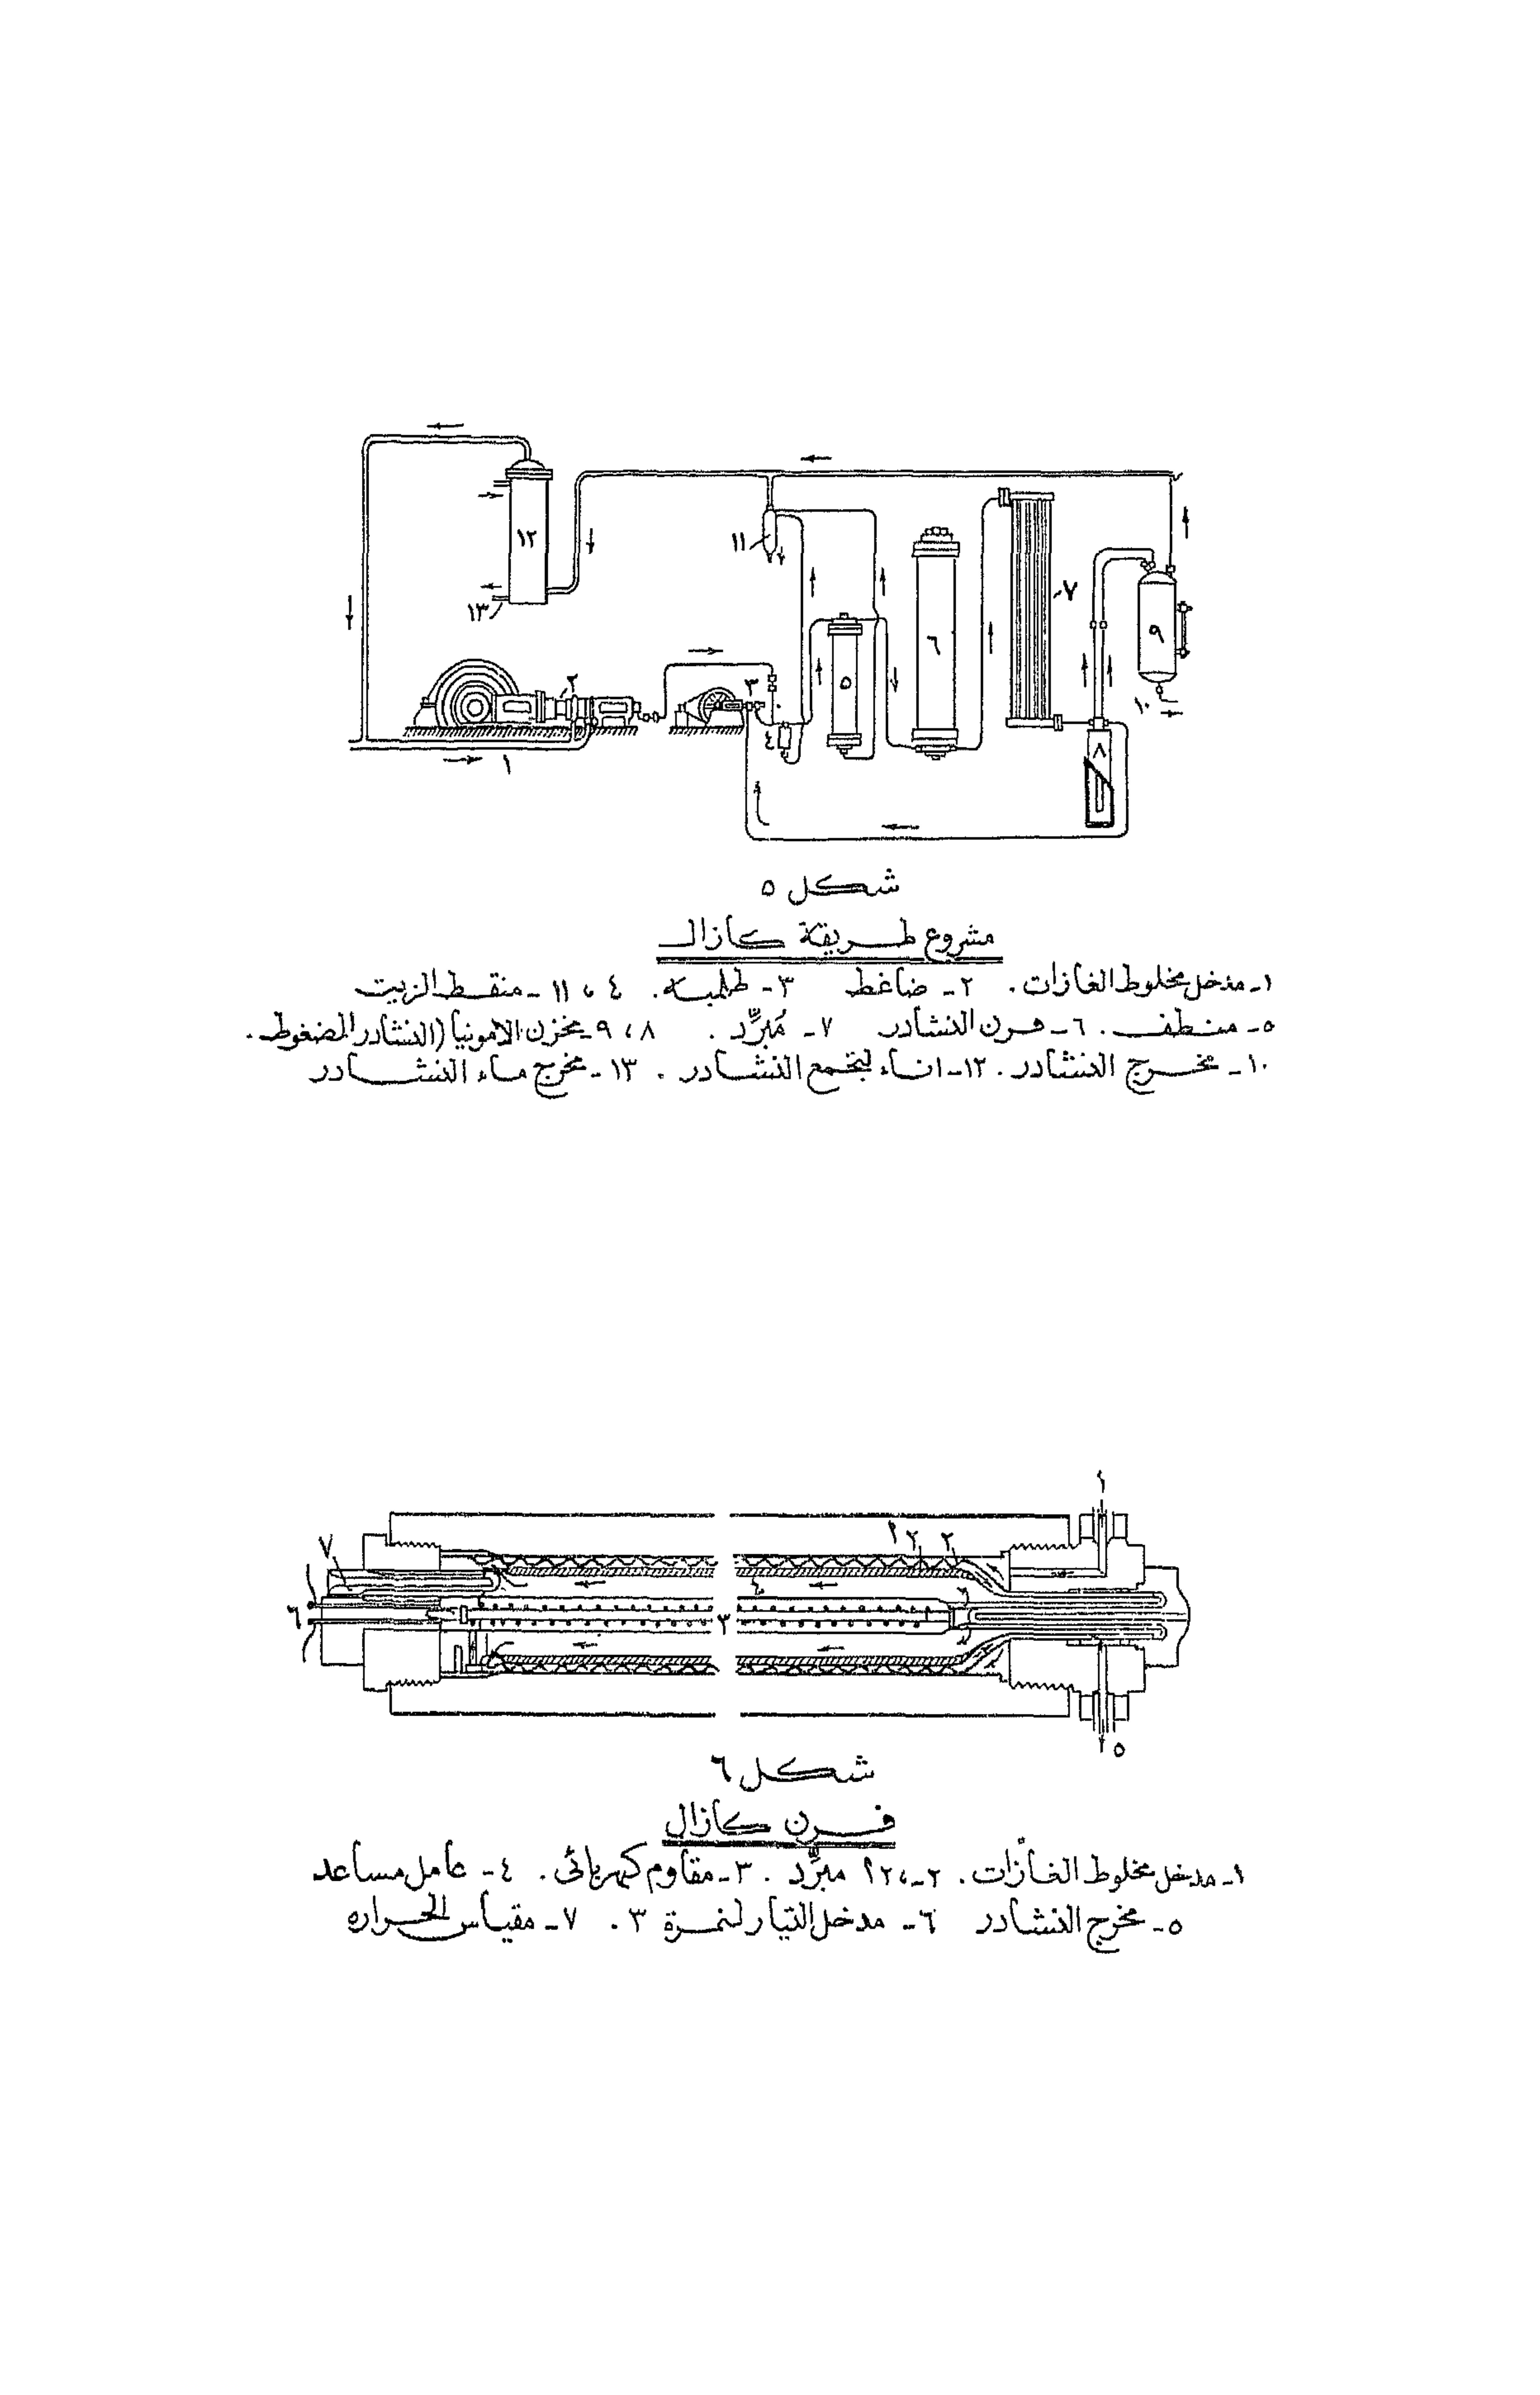 ١٢
١١
١٣
٧
٩
٦
٥
٢
٣
١٠
٤
٨
١
شكل ٥
مشروع طريقة كازال
١- مدخل مخلوط الغازات. ٢- ضاغط ٣- طلمبه. ٤ ، ١١ - منقط الزيت
٥- منظف. ٦- فرن النشادر ٧- مُبرِّد. ٨ ، ٩- مخزن الامونيا (النشادر المضغوط.
١٠- مخرج النشادر. ١٢- اناء لتجمع النشادر. ١٣- مخرج ماء النشادر
١
٧
٢
٢
٤
٦
٣
٥
شكل ٦
فرن كازال
١- مدخل مخلوط الغازات. ٢ ، ٢أ مبرِّد. ٣- مقاوم كهربائى. ٤- عامل مساعد
٥- مخرج النشادر ٦- مدخل التيار لنمرة ٣. ٧- مقياس الحراره